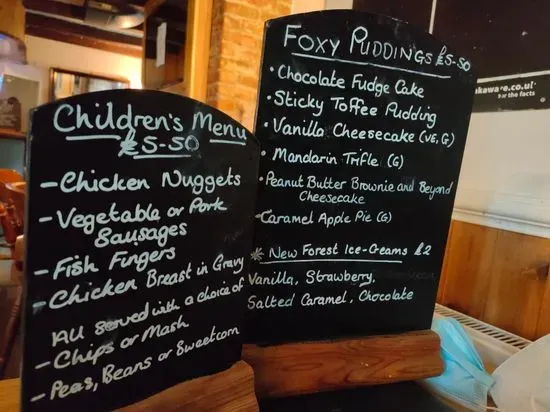 Children's Menu
£5-50
- Chicken Nuggets
- Vegetable or Pork
Sausages
- Fish Fingers
- Chicken Breast in Gravy
All served with a choice of
- Chips or Mash
- Peas, Beans or Sweetcorn
Foxy Puddings £5-50
• Chocolate Fudge Cake
• Sticky Toffee Pudding
• Vanilla Cheesecake (VE, G)
• Mandarin Trifle (G)
• Peanut Butter Brownie and Beyond
Cheesecake
- Caramel Apple Pie (G)
* New Forest Ice-Creams £2
Vanilla, Strawberry,
Salted Caramel, Chocolate
kaware.co.uk
for the facts